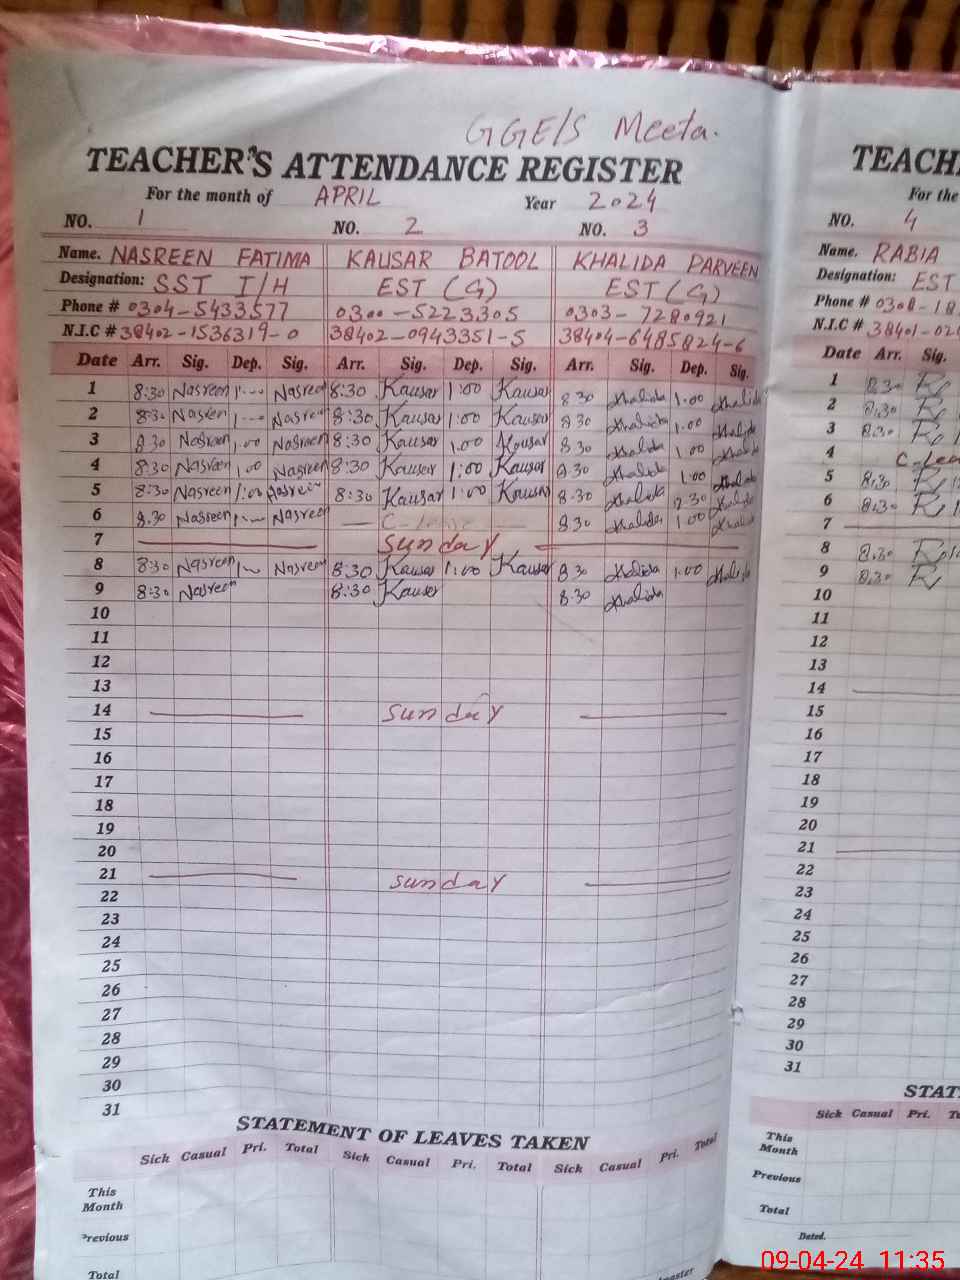 GGE/S Meeta.
TEACHER'S ATTENDANCE REGISTER
For the month of APRIL Year 2024
NO. 1 NO. 2 NO. 3
Name. NASREEN FATIMA KAUSAR BATOOL KHALIDA PARVEEN
Designation: SST I/H EST (G) EST (G)
Phone # 0304-5433577 0300-5223305 0303-7280921
N.I.C # 38402-1536319-0 38402-0943351-5 38404-6485824-6
Date Arr. Sig. Dep. Sig. Arr. Sig. Dep. Sig. Arr. Sig. Dep. Sig.
1 8:30 Nasreen 1:— Nasreen 8:30 Kausar 1:00 Kausar 8 30 Khalida 1.00 Khalida
2 8:30 Nasreen 1:— Nasreen 8:30 Kausar 1:00 Kausar 8 30 Khalida 1.00 Khalida
3 8 30 Nasreen 1.00 Nasreen 8:30 Kausar 1.00 Kausar 8 30 Khalida 1 00 Khalida
4 8:30 Nasreen 1 00 Nasreen 8:30 Kausar 1:00 Kausar 8 30 Khalida 1 00 Khalida
5 8:30 Nasreen 1:00 Nasreen 8:30 Kausar 1:00 Kausar 8.30 Khalida 12.30 Khalida
6 8.30 Nasreen 1:— Nasreen — C-leave — 8 30 Khalida 1 00 Khalida
7 Sunday
8 8:30 Nasreen 1:— Nasreen 8:30 Kausar 1:00 Kausar 8 30 Khalida 1.00 Khalida
9 8:30 Nasreen 8:30 Kauser 8.30 Khalida
10
11
12
13
14 Sunday
15
16
17
18
19
20
21 Sunday
22
23
24
25
26
27
28
29
30
31
STATEMENT OF LEAVES TAKEN
Sick Casual Pri. Total Sick Casual Pri. Total Sick Casual Pri. Total
This Month
Previous
Total
TEACH
For the
NO. 4
Name. RABIA
Designation: EST
Phone # 0308-18
N.I.C # 38401-02
Date Arr. Sig.
1 8.30
2 8.30
3 8.30
4 C-Lea
5 8.30
6 8.30
7
8 8.30
9 8.30
10
11
12
13
14
15
16
17
18
19
20
21
22
23
24
25
26
27
28
29
30
31
STAT
Sick Casual Pri.
This Month
Previous
Total
Dated.
09-04-24 11:35